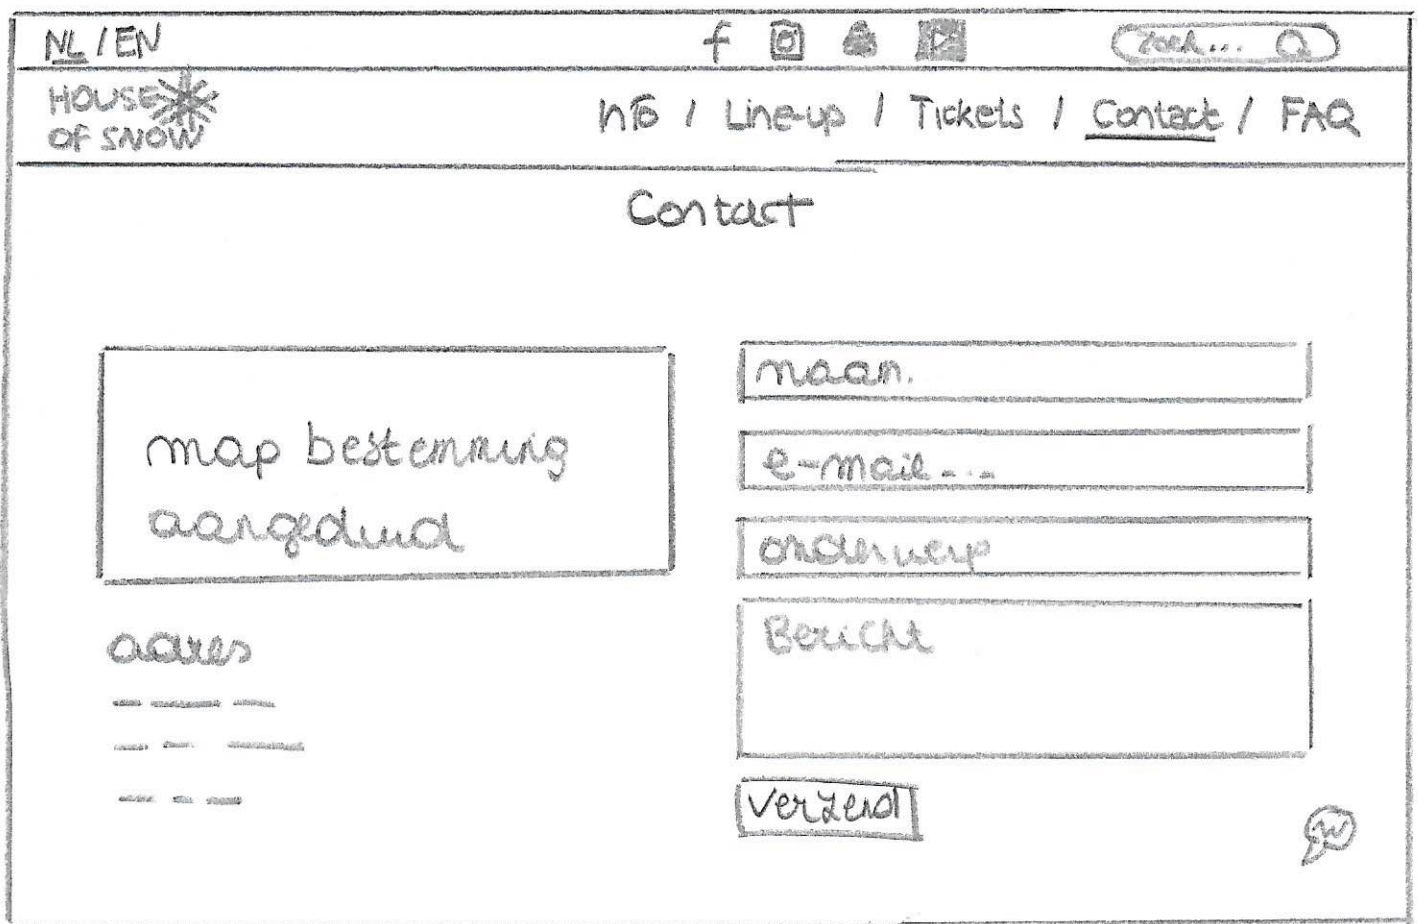 NL / EN
zoek...
HOUSE
OF SNOW
Info / Line-up / Tickets / Contact / FAQ
Contact
map bestemming
aangeduid
adres
naam.
e-mail...
onderwerp
Bericht
Verzend